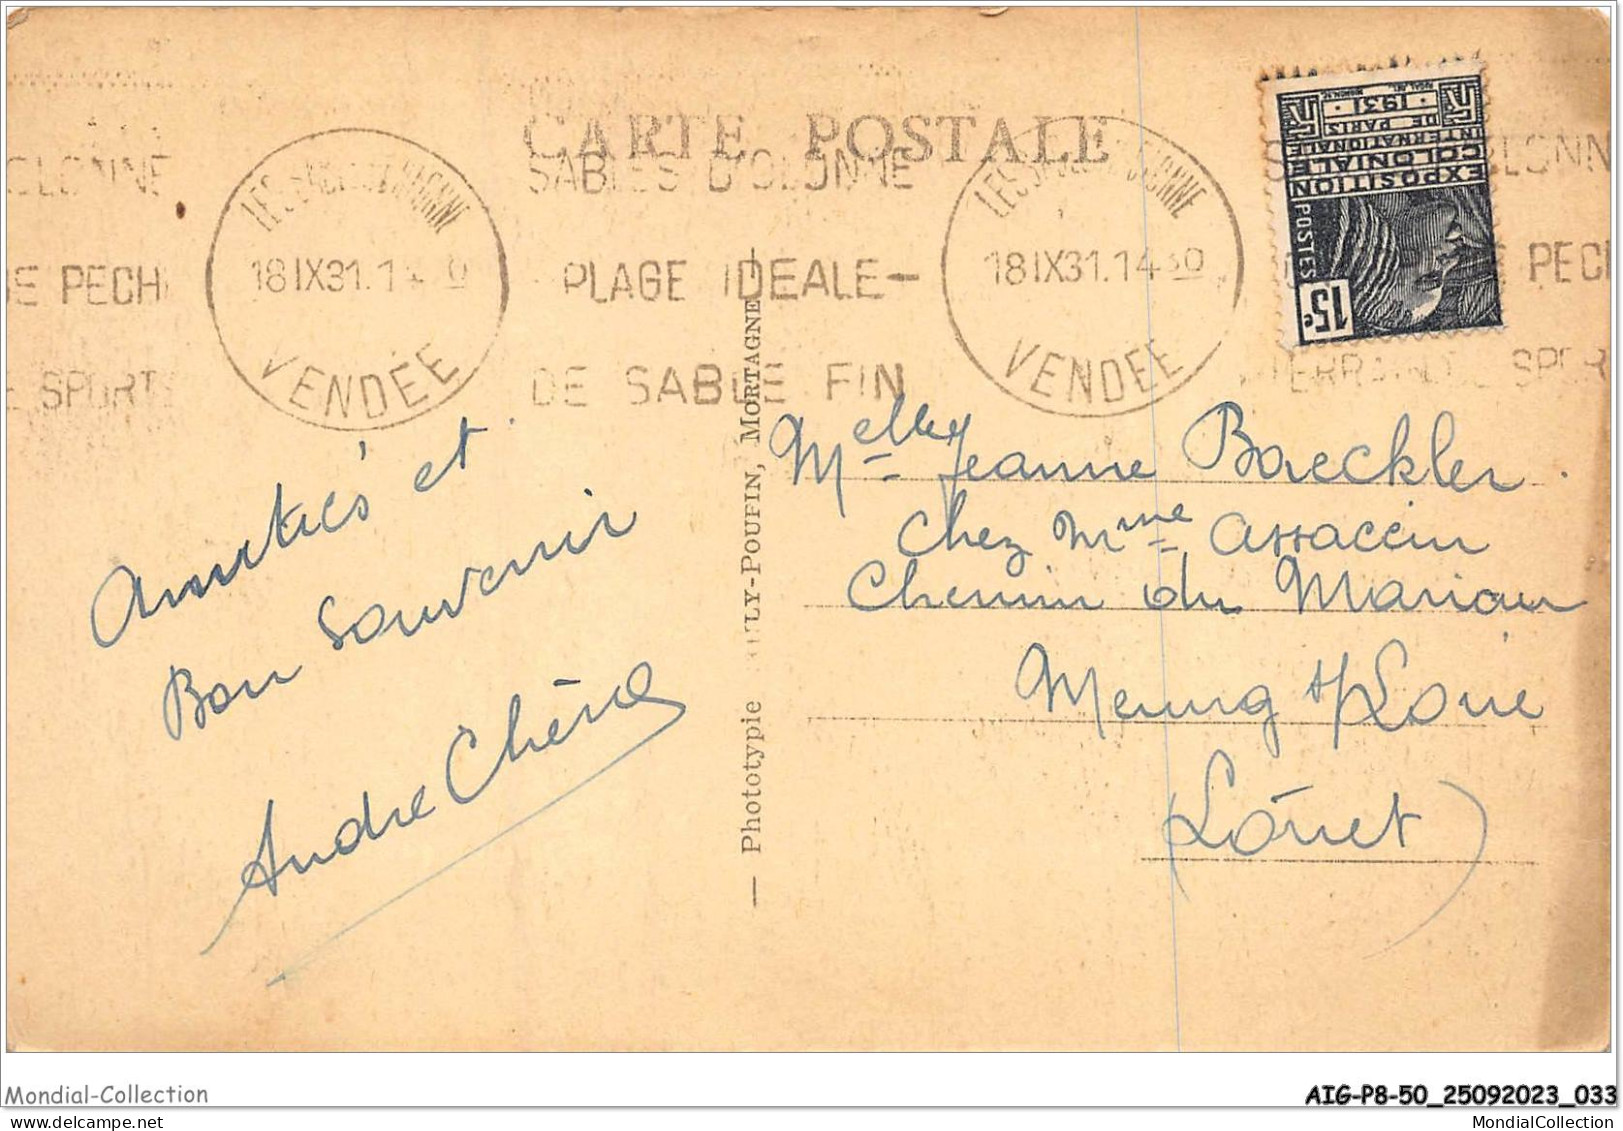 CARTE POSTALE
SABLES D'OLONNE
PLAGE IDEALE-
DE SABLE FIN
18 IX 31. 14
VENDÉE
LES SABLES D'OLONNE
18 IX 31. 14 30
VENDÉE
OLONNE
DE PECH
SPORT
LONN
PECH
TERRAIN DE SPOR
1931
EXPOSITION
COLONIALE
INTERNATIONALE
DE PARIS
POSTES
15c
Amitiés et
Bon souvenir
André
— Phototypie LY-POUPIN, MORTAGNE
Melle Jeanne Baeckler
chez Mme assaccin
Chemin du
Meung s/ Loire
(Loiret)
Mondial-Collection
AIG-P8-50_25092023_033
MondialCollection
MondialCollection